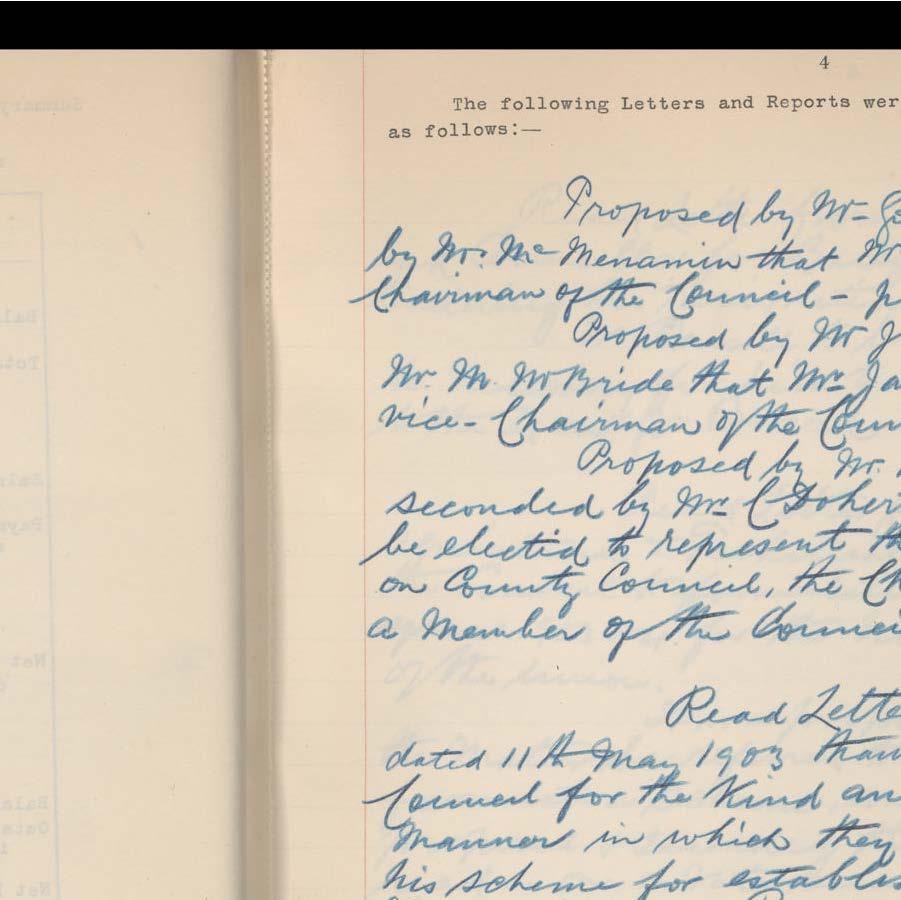 4
The following Letters and Reports wer
as follows:—
Proposed by Mr
by Mr. Mc Menamin that Mr
Chairman of the Council -
Proposed by Mr J
Mr. M. McBride that Mr. Ja
vice-Chairman of the Coun
Proposed by Mr.
seconded by Mr. C Doher
be elected to represent th
on County Council, the Ch
a Member of the Counci
Read Lette
dated 11th May 1903 than
Council for the Kind an
Manner in which they
his scheme for establis